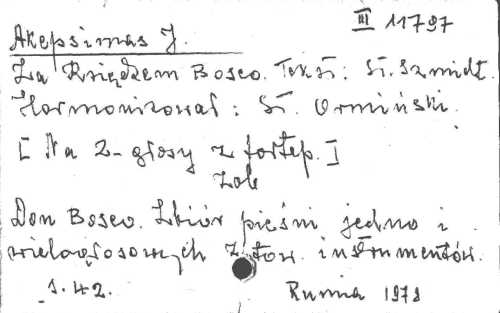 III 11797
Akepsimas J.
Za Księdzem Bosco. Tekst: St. Szmidt.
Harmonizował: St. Ormiński.
[Na 2-głosy z fortep.]
Zob
Don Bosco. Zbiór pieśni jedno i
wielogłosowych z tow. instrumentów.
s. 42. Rumia 1978